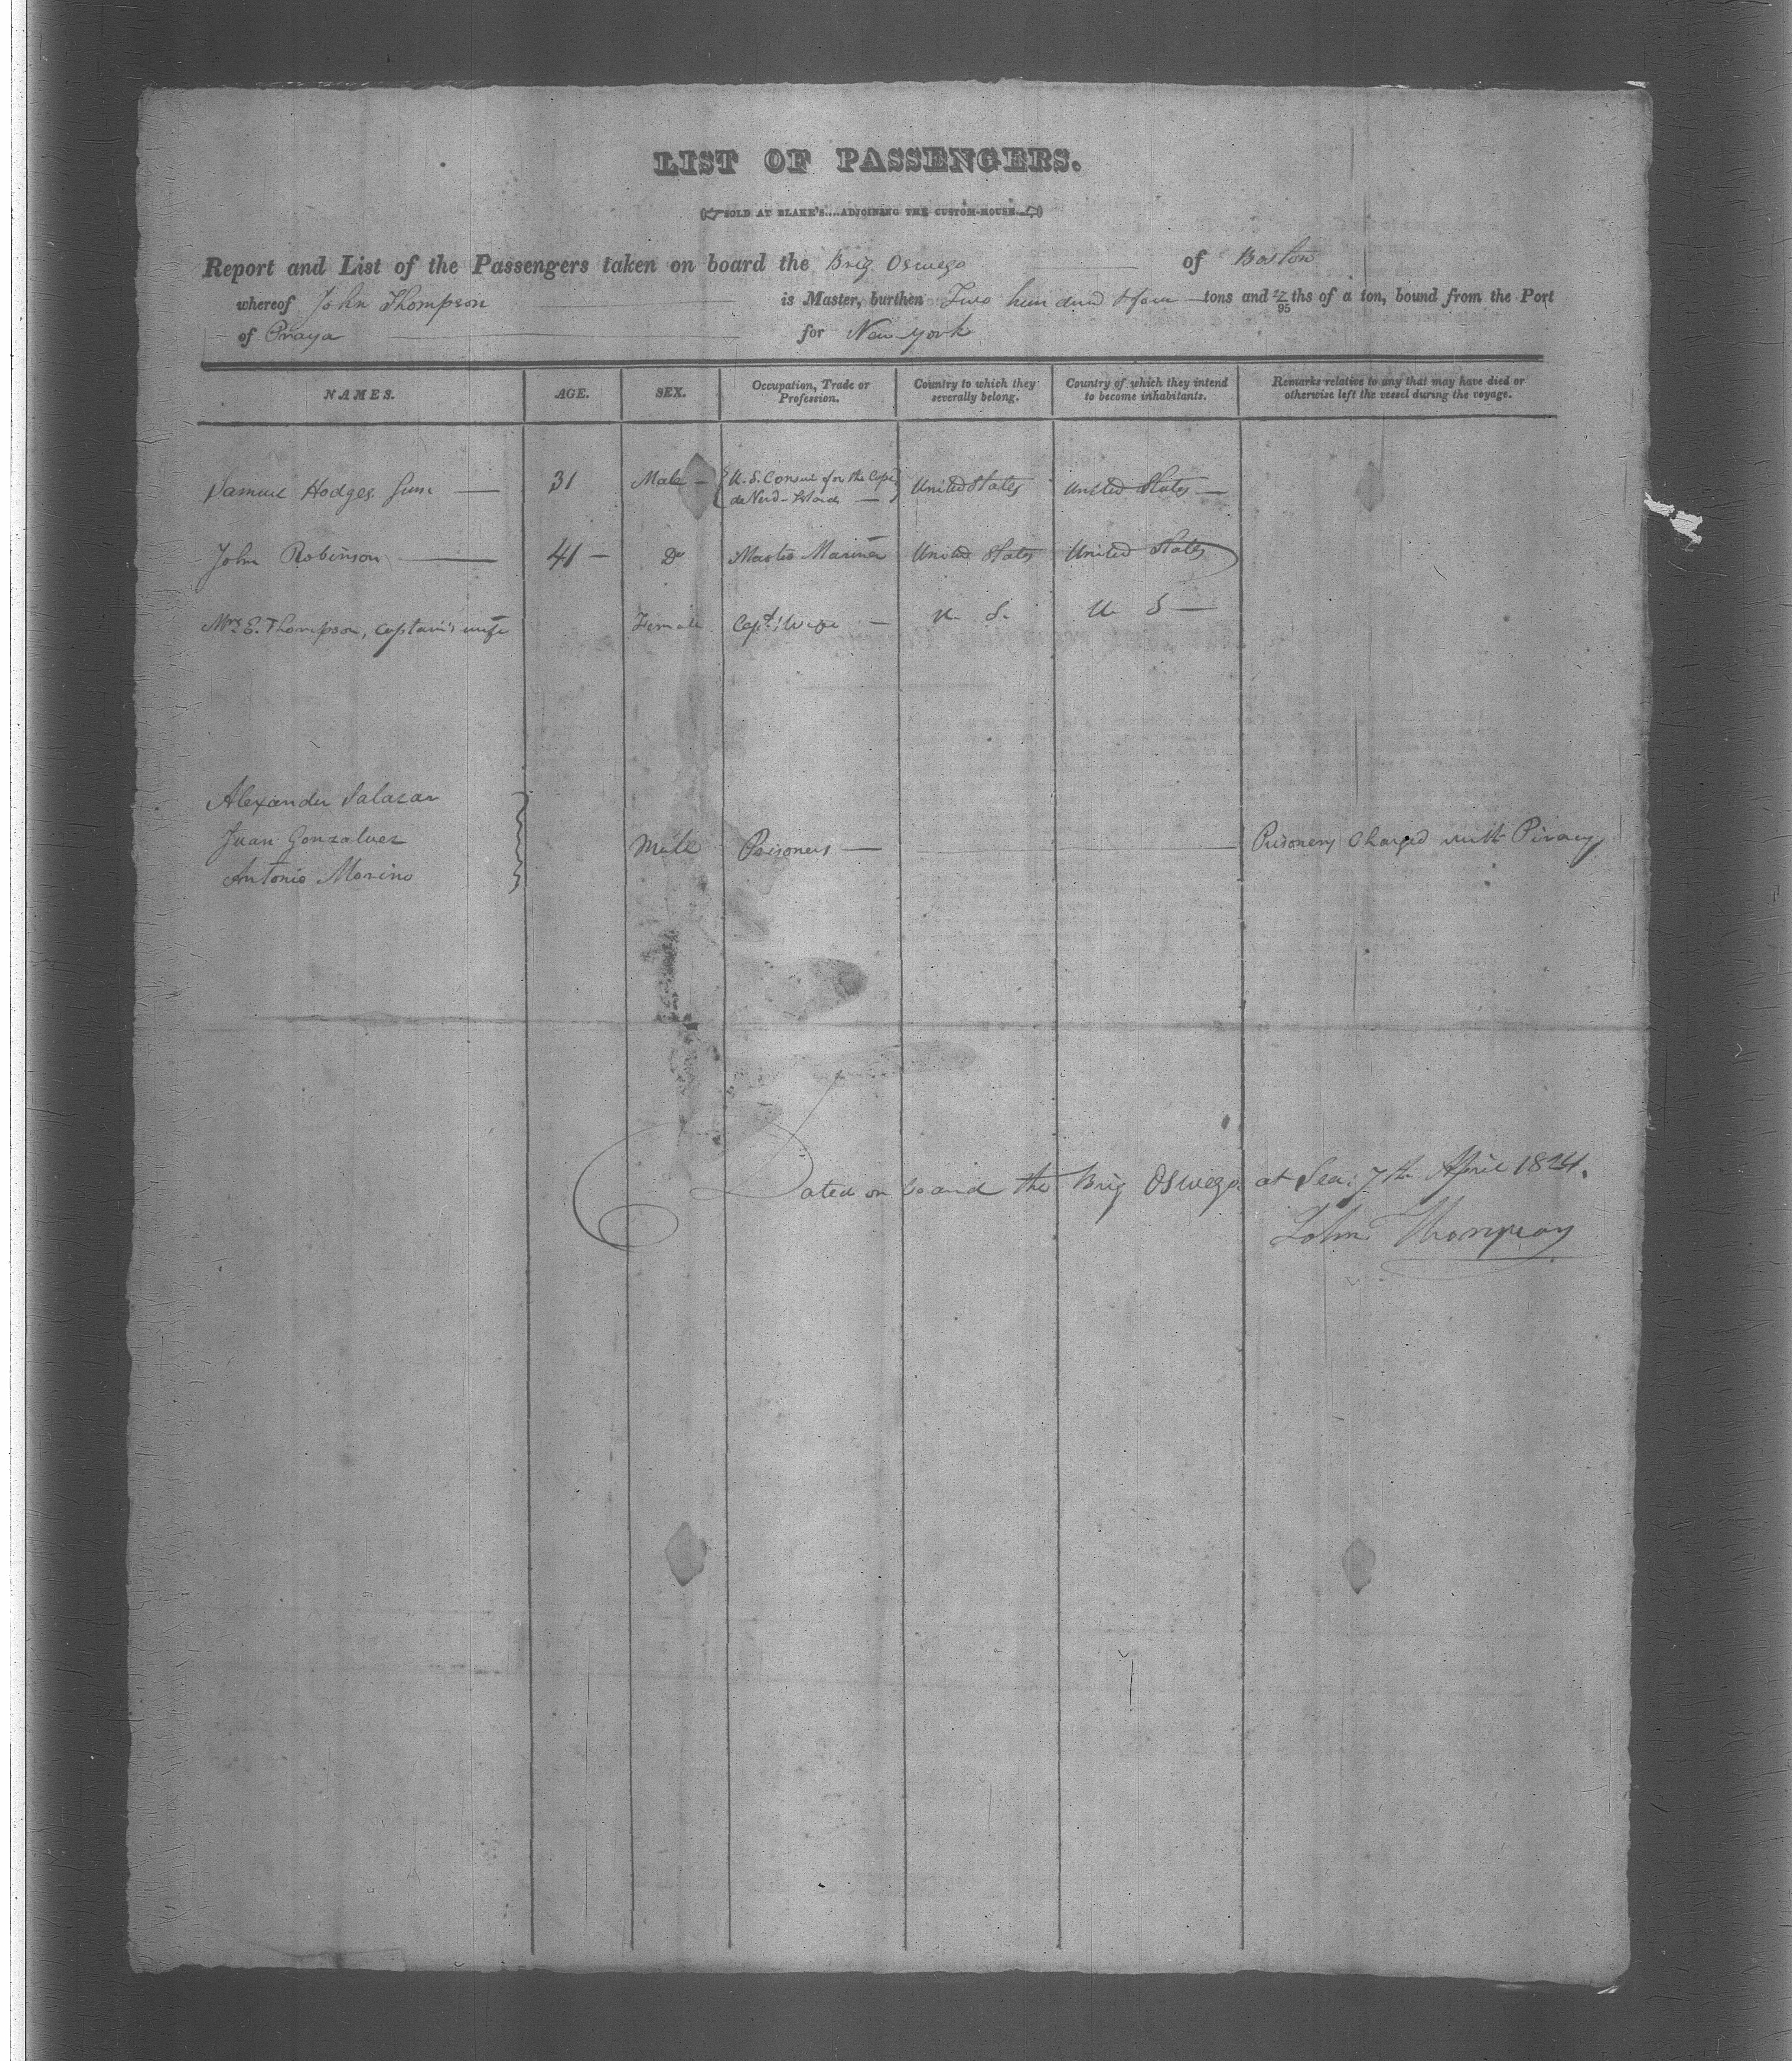 LIST OF PASSENGERS.
(SOLD AT BLAKE'S....ADJOINING THE CUSTOM-HOUSE.)
Report and List of the Passengers taken on board the Brig Oswego of Boston
whereof John Thompson is Master, burthen Two hundred & four tons and ths of a ton, bound from the Port
95
of Praya for New York
NAMES. AGE. SEX. Occupation, Trade or Profession. Country to which they severally belong. Country of which they intend to become inhabitants. Remarks relative to any that may have died or otherwise left the vessel during the voyage.
Samuel Hodges Junr 31 Male U. S. Consul for the Cape de Verd Islands United States United States
John Robinson 41 Do Master Mariner United States United States
Mrs E. Thompson, Captain's wife Female Capt's Wife U. S. U S
Alexander Salazar
Juan Gonzalvez Male Prisoners Prisoners Charged with Piracy
Antonio Marino
Dated on board the Brig Oswego at Sea. 7th April 1824.
John Thompson